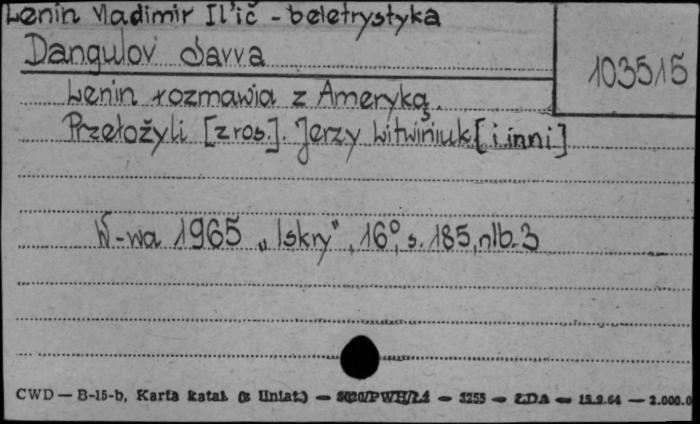 Lenin Vladimir Il'ič - beletrystyka
Dangulov Savva
103515
Lenin rozmawia z Ameryką.
Przełożyli [z ros.]. Jerzy Litwiniuk [i inni]
W-wa 1965 „Iskry", 16°, s. 185, nlb. 3
CWD — B-15-b, Karta katal. (z liniat.) — PWH/Ł4 — 3255 — ŁDA — 15.9.64 — 2.000.0